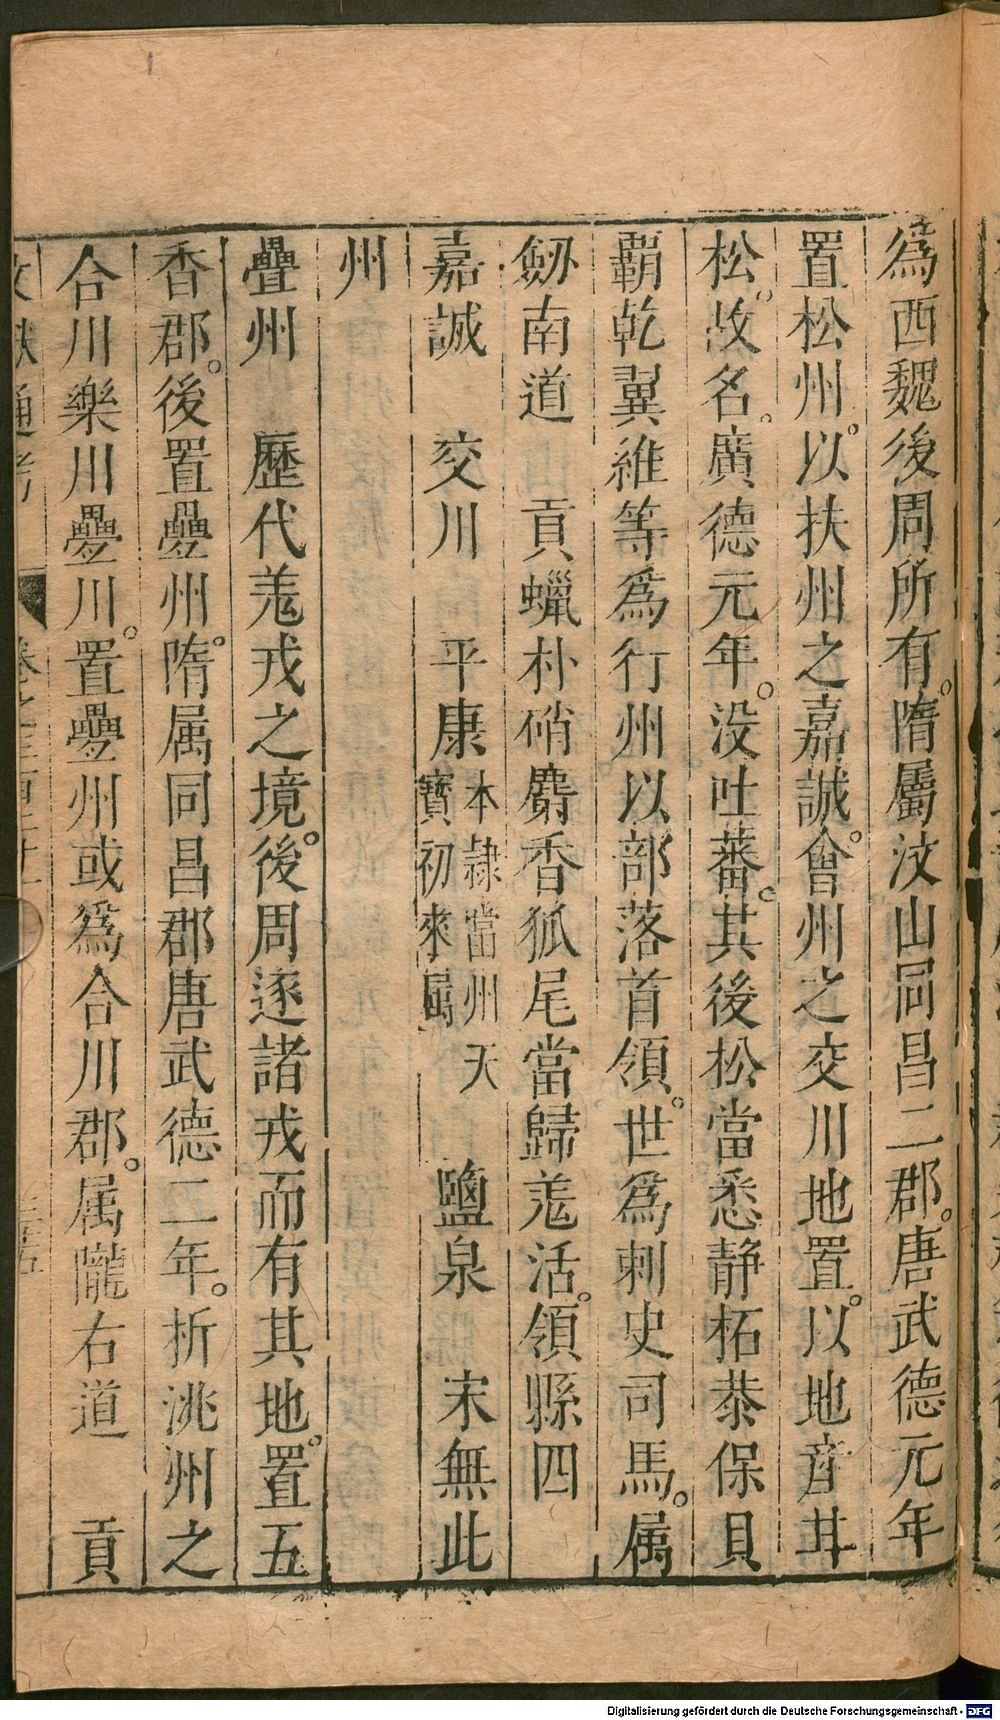 為西魏後周所有。隋屬汶山同昌二郡。唐武德元年
置松州。以扶州之嘉誠。會州之交川地置。以地産甘
松。故名。廣德元年。没吐蕃。其後松當悉静柘恭保貝
覇乾翼維等為行州以部落首領。世為刺史司馬。属
劔南道　貢蠟朴硝麝香狐尾當歸羌活。領縣四
嘉誠　交川　平康本隷當州天寶初來属　鹽泉　宋無此
州
疊州　歷代羌戎之境。後周逐諸戎而有其地。置五
香郡。後置疊州。隋属同昌郡唐武德二年。折洮州之
合川樂川疊川。置疊州或為合川郡。属隴右道　貢
文献通考　卷之三百二十二　三五
Digitalisierung gefördert durch die Deutsche Forschungsgemeinschaft - DFG